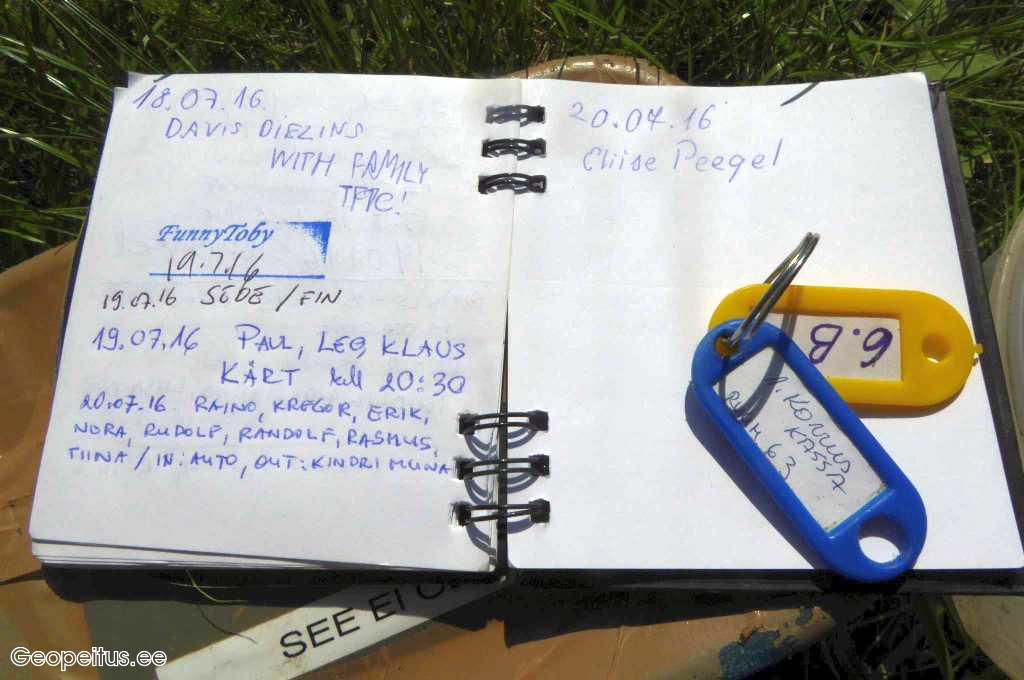 18.07.16.
DAVIS DIEZINS
WITH FAMILY
TFTC!
FunnyToby
19.7.16
19.07.16 SEDE / FIN
19.07.16 PAUL, LEO, KLAUS
KÄRT kell 20:30
20.07.16 RAINO, KREGOR, ERIK,
NORA, RUDOLF, RANDOLF, RASMUS,
TIINA / IN: AUTO, OUT: KINDRI MUNA
20.07.16
Eliise Peegel
6.B
1. KORRUS
KLASSA
RUUM 63
SEE EI
Geopeitus.ee